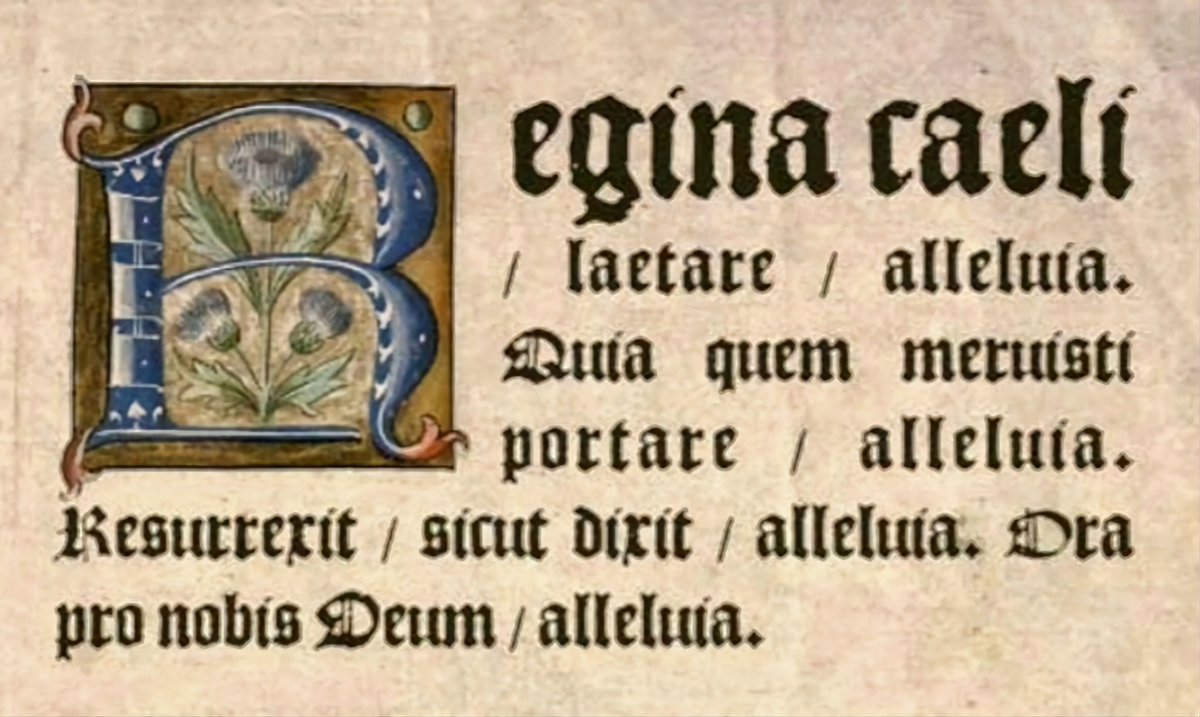 Regina caeli
/ laetare / alleluia.
Quia quem meruisti
portare / alleluia.
Resurrexit / sicut dixit / alleluia. Ora
pro nobis Deum / alleluia.